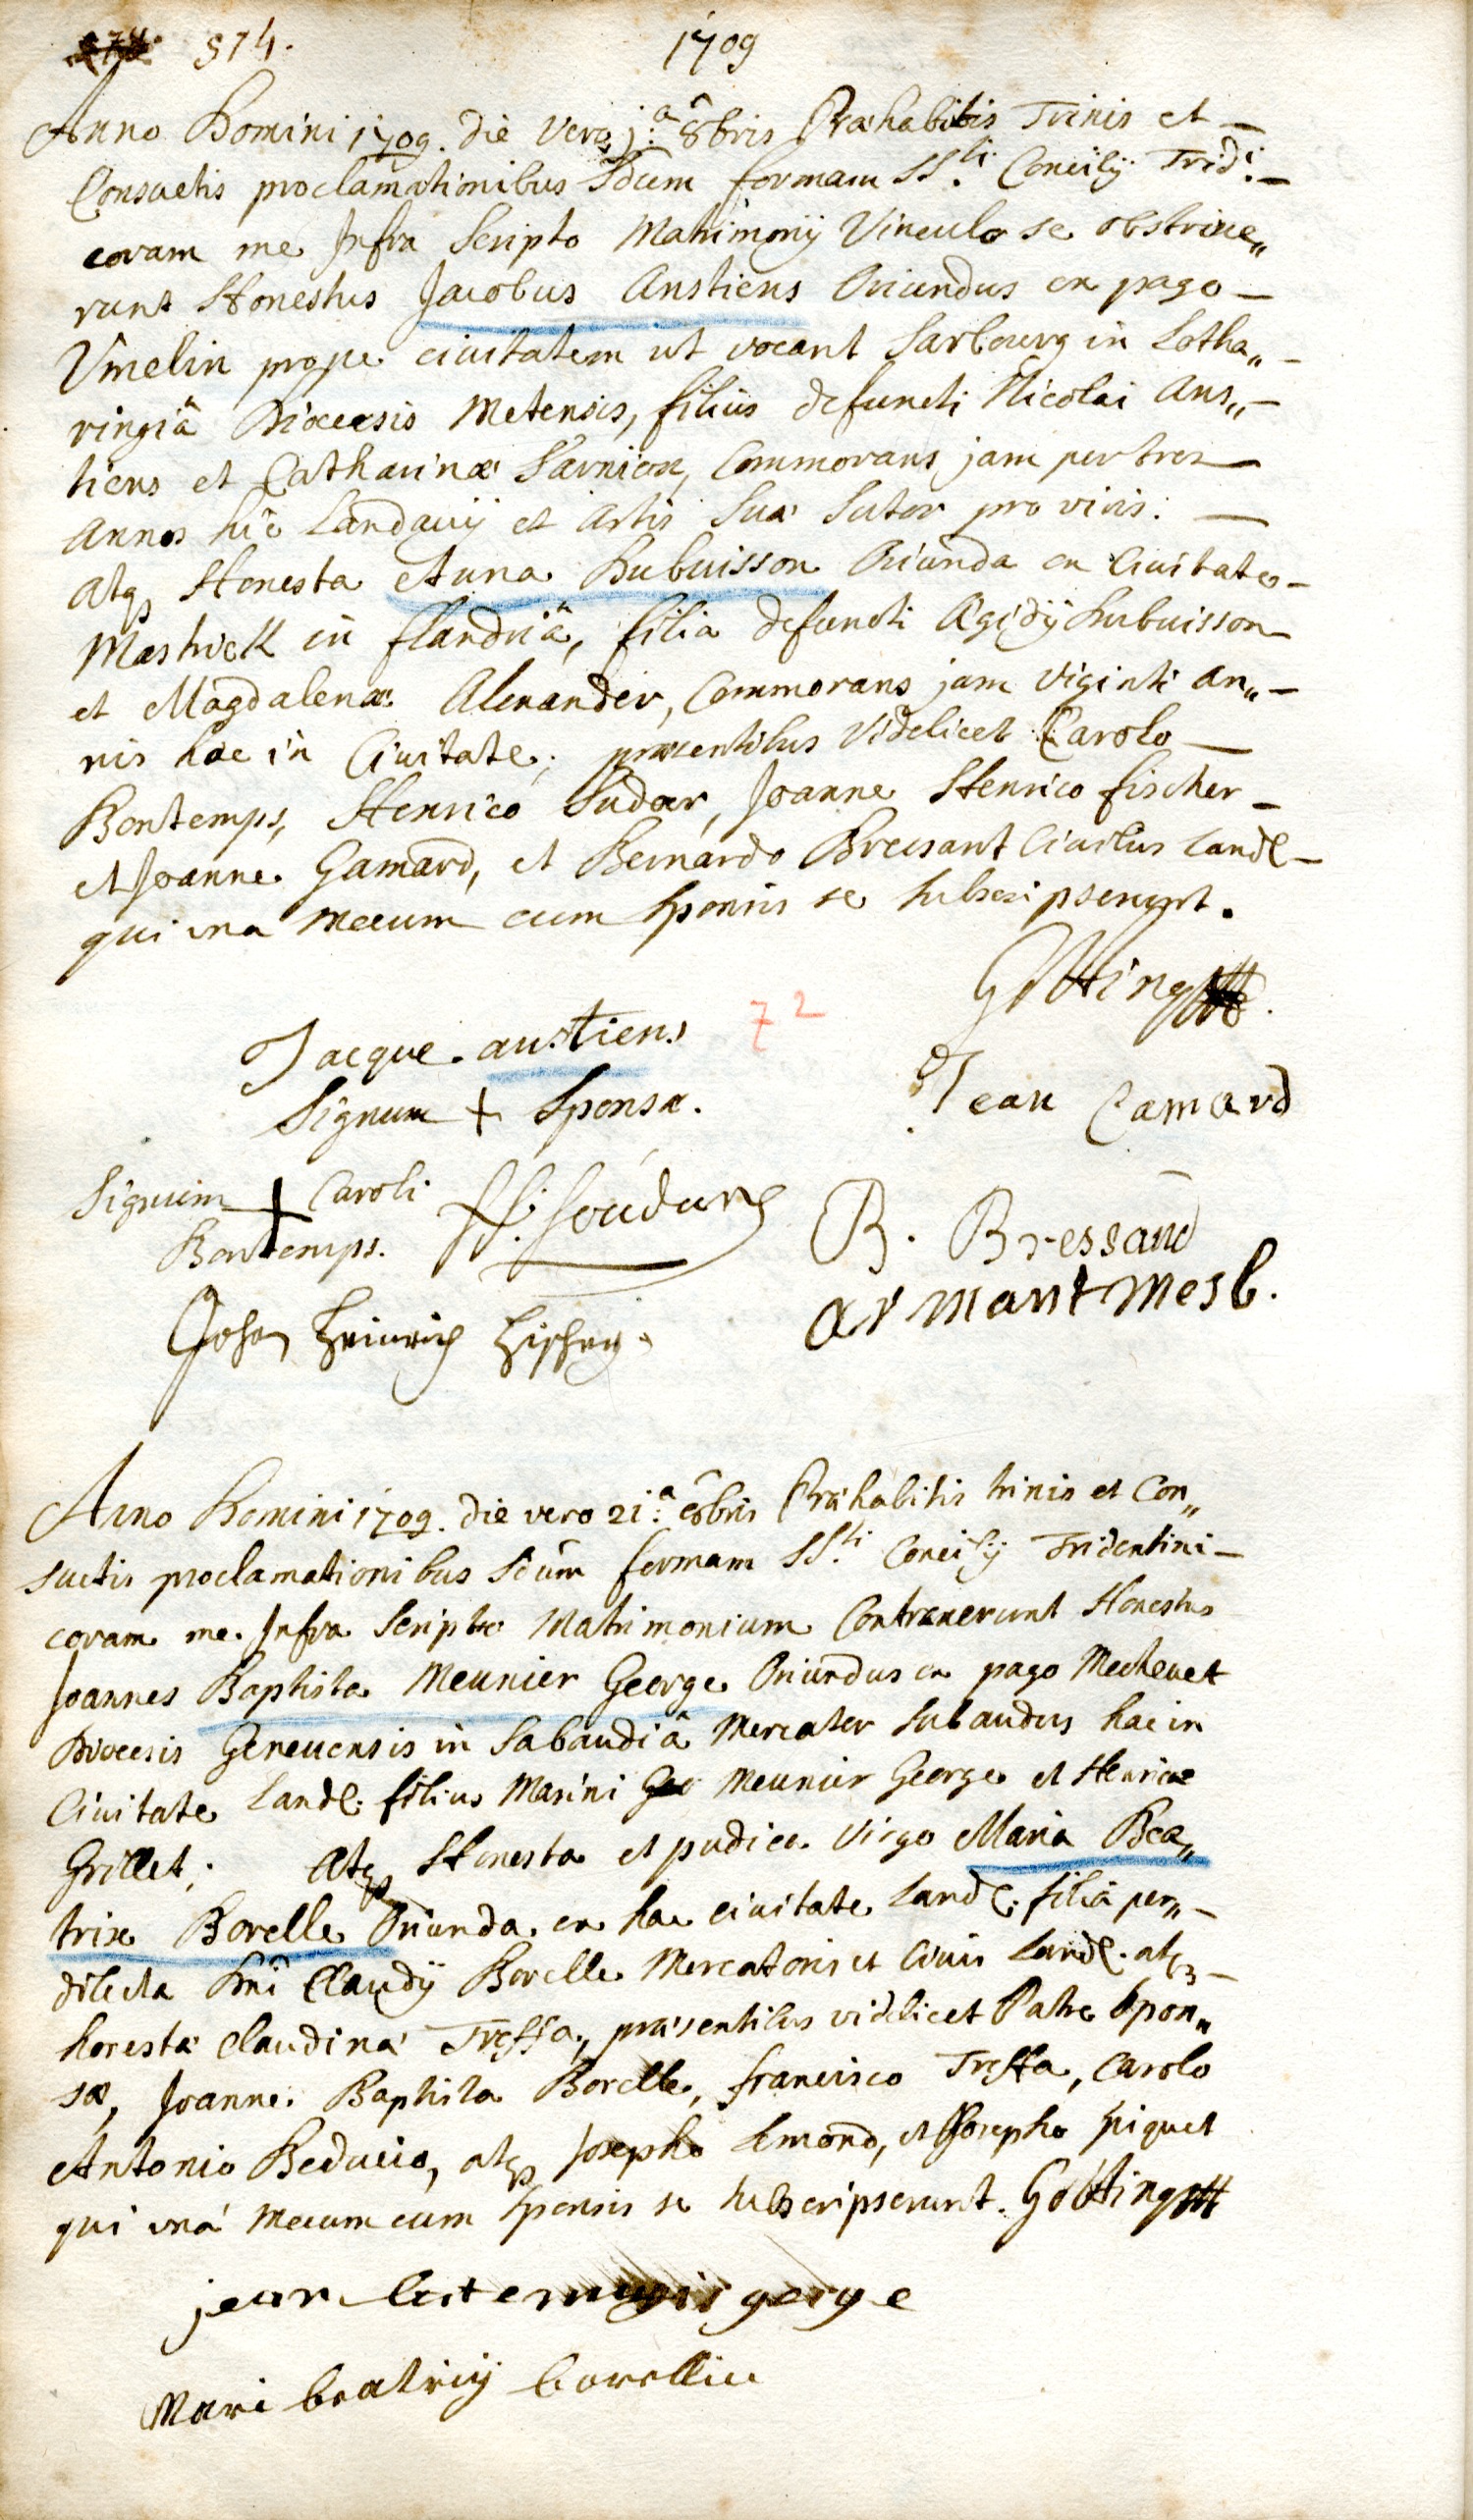 574. 1709
Anno Domini 1709. die vero j.a 8bris Præhabitis Trinis et
Consuetis proclamationibus Sdum formam SS.ti Concilÿ Trid:
coram me Infra Scripto Matrimonÿ Vinculo se obstrinxe„
runt Honestus Jacobus Anstiens Oriundus ex pago
Vmelin prope ciuitatem ut vocant Sarbourg in Lotha„
ringiâ Diœcesis Metensis, filius defuncti Nicolai Ans„
tiens et Catharinæ Sarnion, Commorans jam per tres
Annos hîc Landauÿ et Artis Suæ Sutor pro viris.
Atq3 Honesta Anna Dubuisson Oriunda ex Ciuitate
Mastrick in flandriâ, filia defuncti Ægidÿ Dubuisson
et Magdalenæ Alexander, Commorans jam Viginti an„
nis hac in Ciuitate; præsentibus Videlicet Carolo
Bontemps, Henrico Sudar, Joanne Henrico fischer
et Joanne Gamard, et Bernardo Bressant Ciuibus Landl
qui una mecum cum Sponsis se subscripserunt.
Götting
Jacque austiens 72
Signum + Sponsæ. Jean Camard
Signum + Caroli
Bontemps. B. Bressand
Johan Heinrich armant Mesb.
Anno Domini 1709. die vero 21.a 8bris Præhabitis trinis et Con„
suetis proclamationibus Sdûm formam SS.ti Concilÿ Tridentini
coram me Infra Scripto Matrimonium Contraxerunt Honestus
Joannes Baptista Meunier George Oriundus ex pago Mechevet
Diœcesis Geneuensis in Sabaudiâ Mercator Sabaudus hac in
Ciuitate Landl: filius Marini Meunier George et Henricæ
Grillet; Atq3 Honesta et pudica Virgo Maria Bea„
trix Borelle Oriunda ex hac ciuitate Landl: filia per„
dilecta Dni Claudÿ Borelle Mercatoris et Ciuis Landl. atq3
honestæ Claudinæ Treffa, præsentibus videlicet Patre Spon„
sæ, Joanne Baptista Borelle, francisco Treffa, Carolo
Antonio Beducio, atq3 Josepho Emond, et Josepho Piquet
qui unà mecum cum Sponsis se subscripserunt. Götting
jean george
Mari beatrix borellie